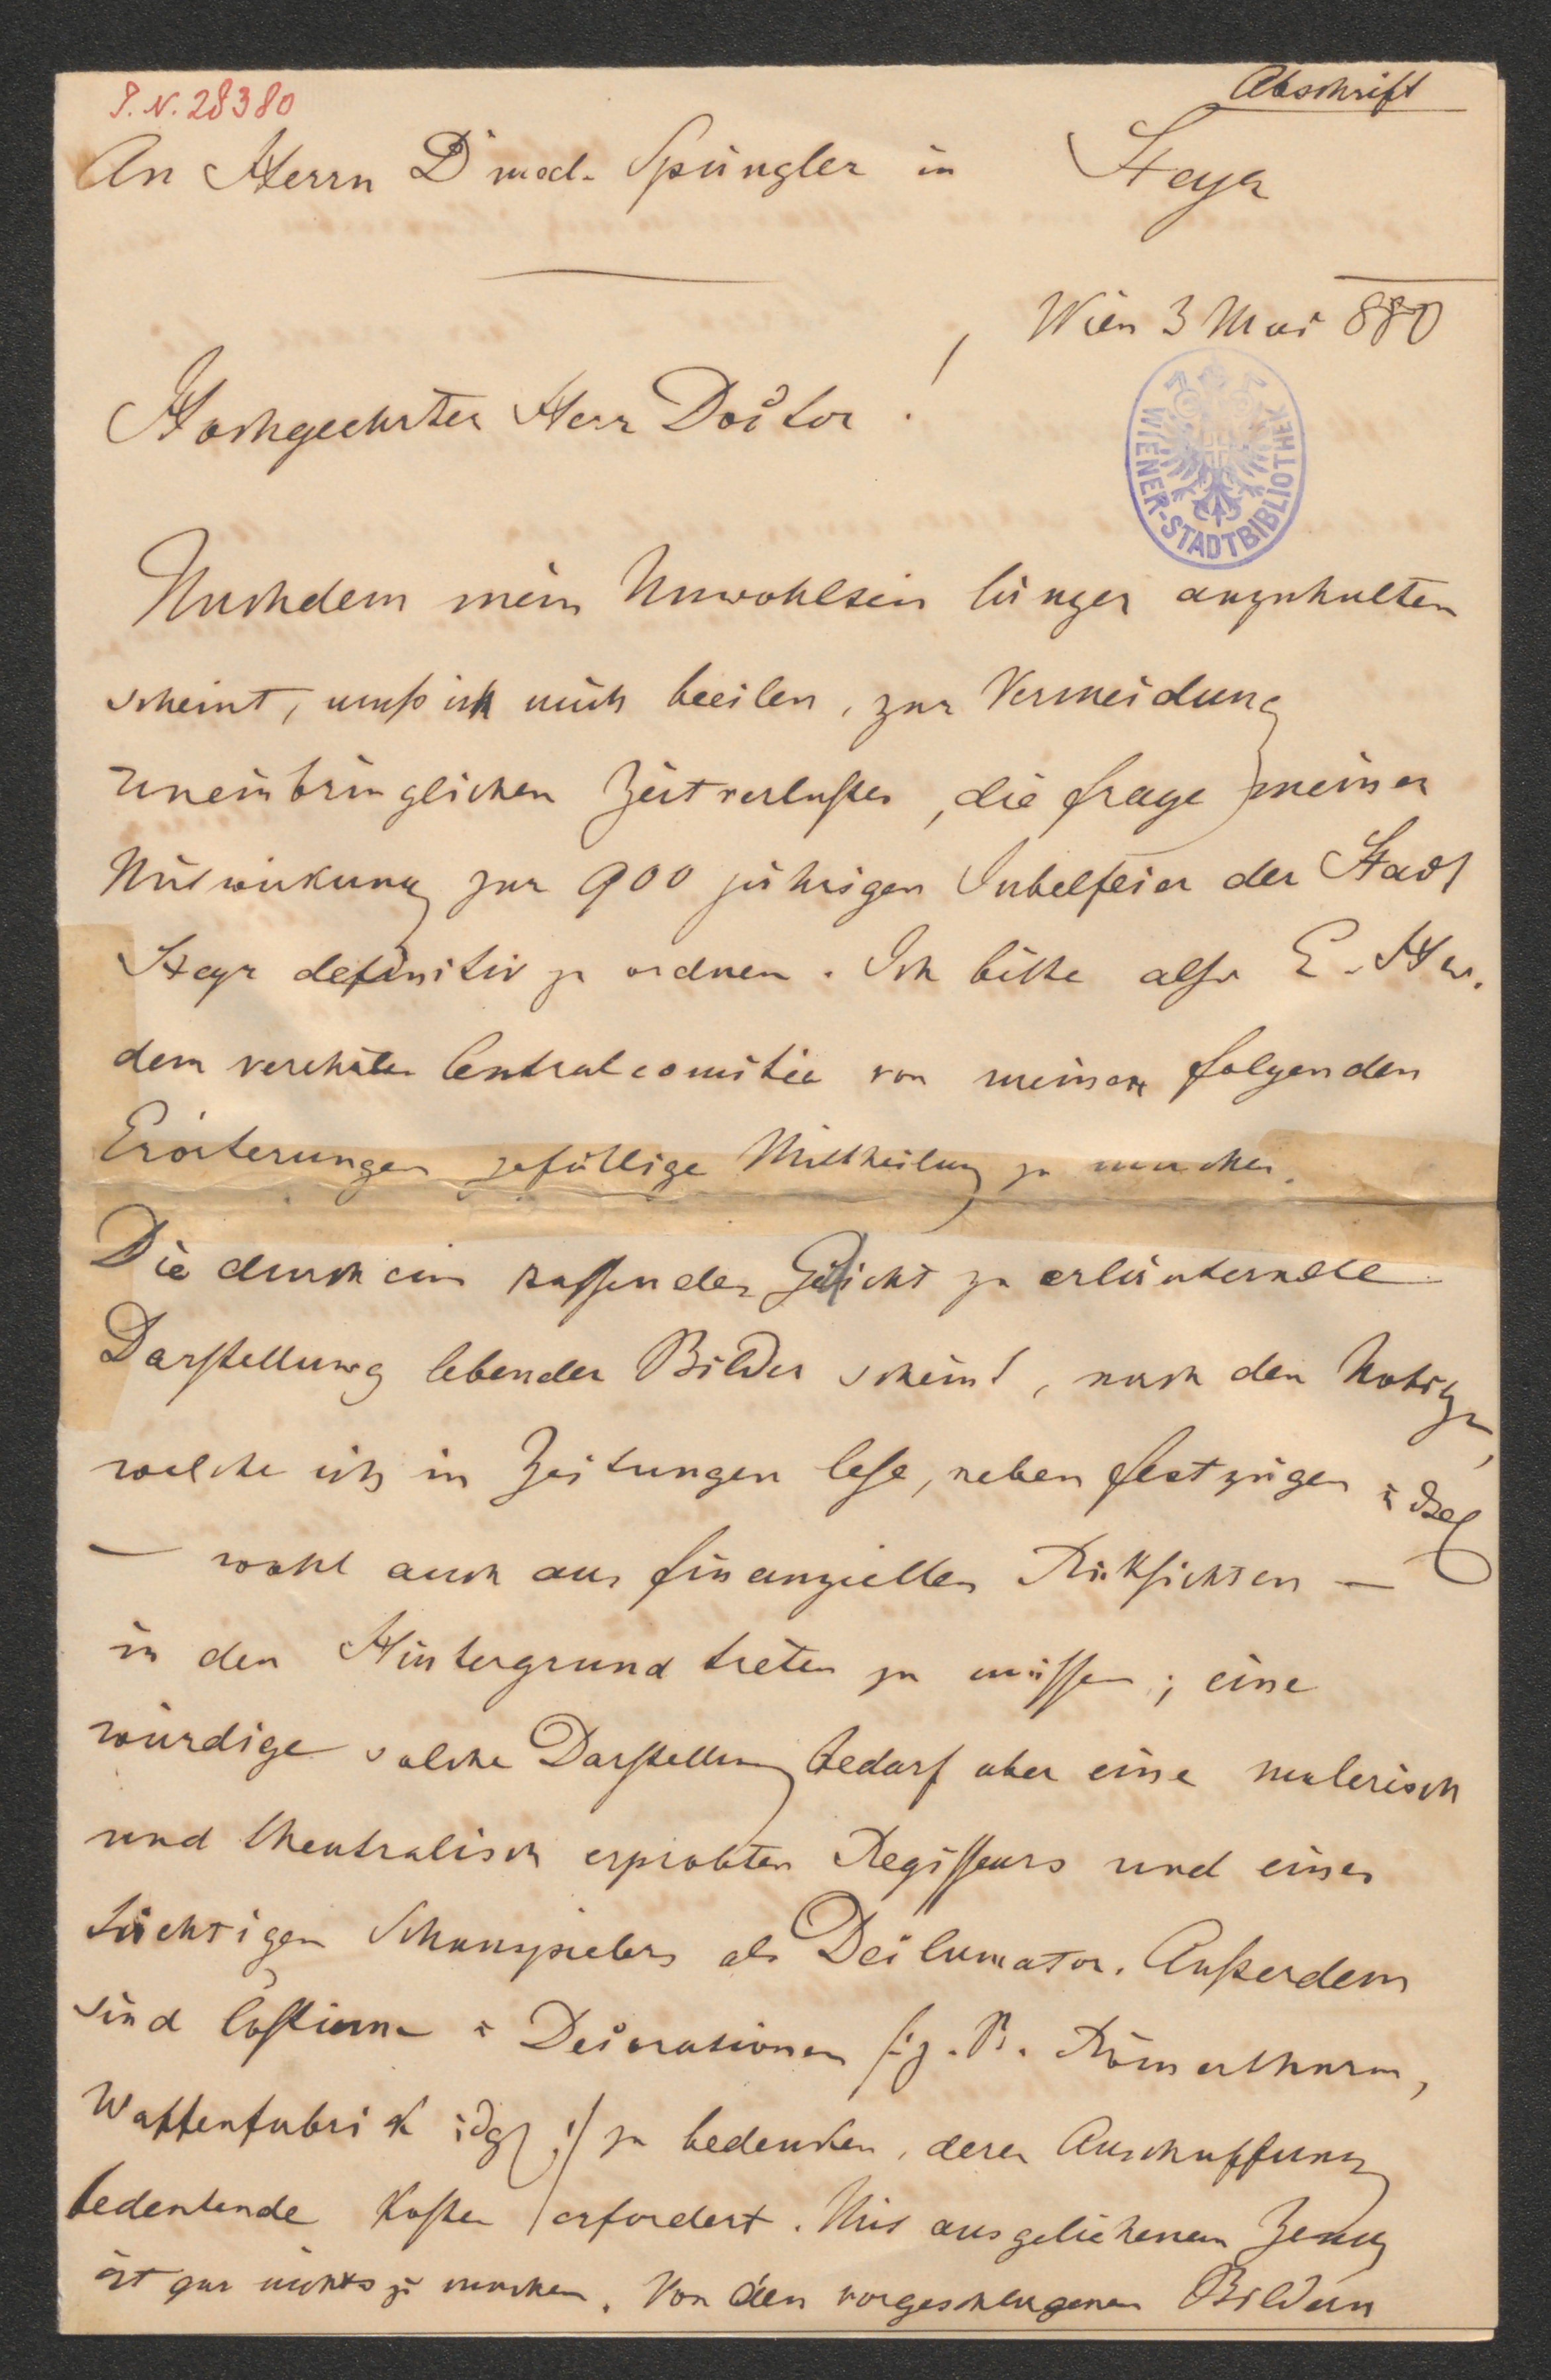 J.N. 28380
Abschrift
An Herrn Dr med. Spängler in Steyr
Wien 3 Mai 880
WIENER-STADTBIBLIOTHEK
Hochgeehrter Herr Doctor!
Nachdem mein Unwohlsein länger anzuhalten
scheint, muß ich mich beeilen, zur Vermeidung
uneinbringlichen Zeitverlustes, die Frage meiner
Mitwirkung zur 900 jährigen Jubelfeier der Stadt
Steyr definitiv zu ordnen. Ich bitte also E. Hw.
dem verehrten Centralcomitée von meinen folgenden
Erörterungen gefällige Mittheilung zu machen.
Die durch ein passendes Gedicht zu erläuternde
Darstellung lebender Bilder scheint, nach den Notizen,
welche ich in Zeitungen lese, neben Festzügen u dgl
– wohl auch aus finanziellen Rücksichten –
in den Hintergrund treten zu müssen; eine
würdige solche Darstellung bedarf aber eine malerisch
und theatralisch erprobten Regisseurs und eines
tüchtigen Schauspielers als Declamator. Außerdem
sind Costüme u Decorationen /:z. B. Römerthurm,
Waffenfabrik u dgl :/ zu bedenken, deren Anschaffung
bedeutende Kosten erfordert. Mit ausgeliehenem Zeug
ist gar nichts zu machen. Von den vorgeschlagenen Bildern